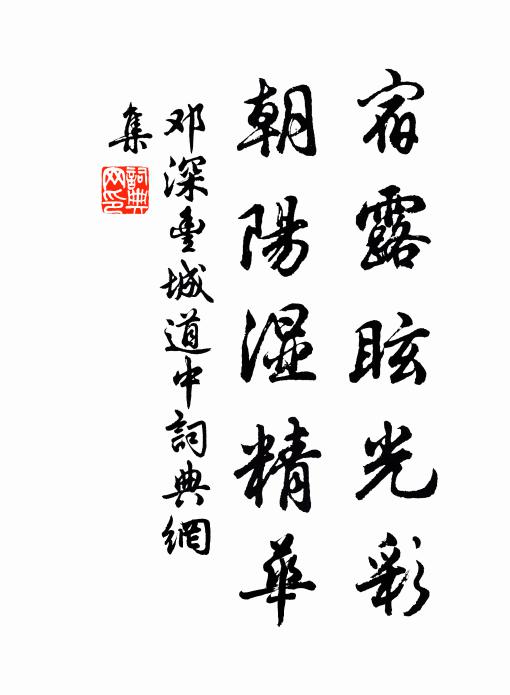 宿露眩光彩
朝陽湿精華
邓深豊城道中詞典網
集
詞典
网印